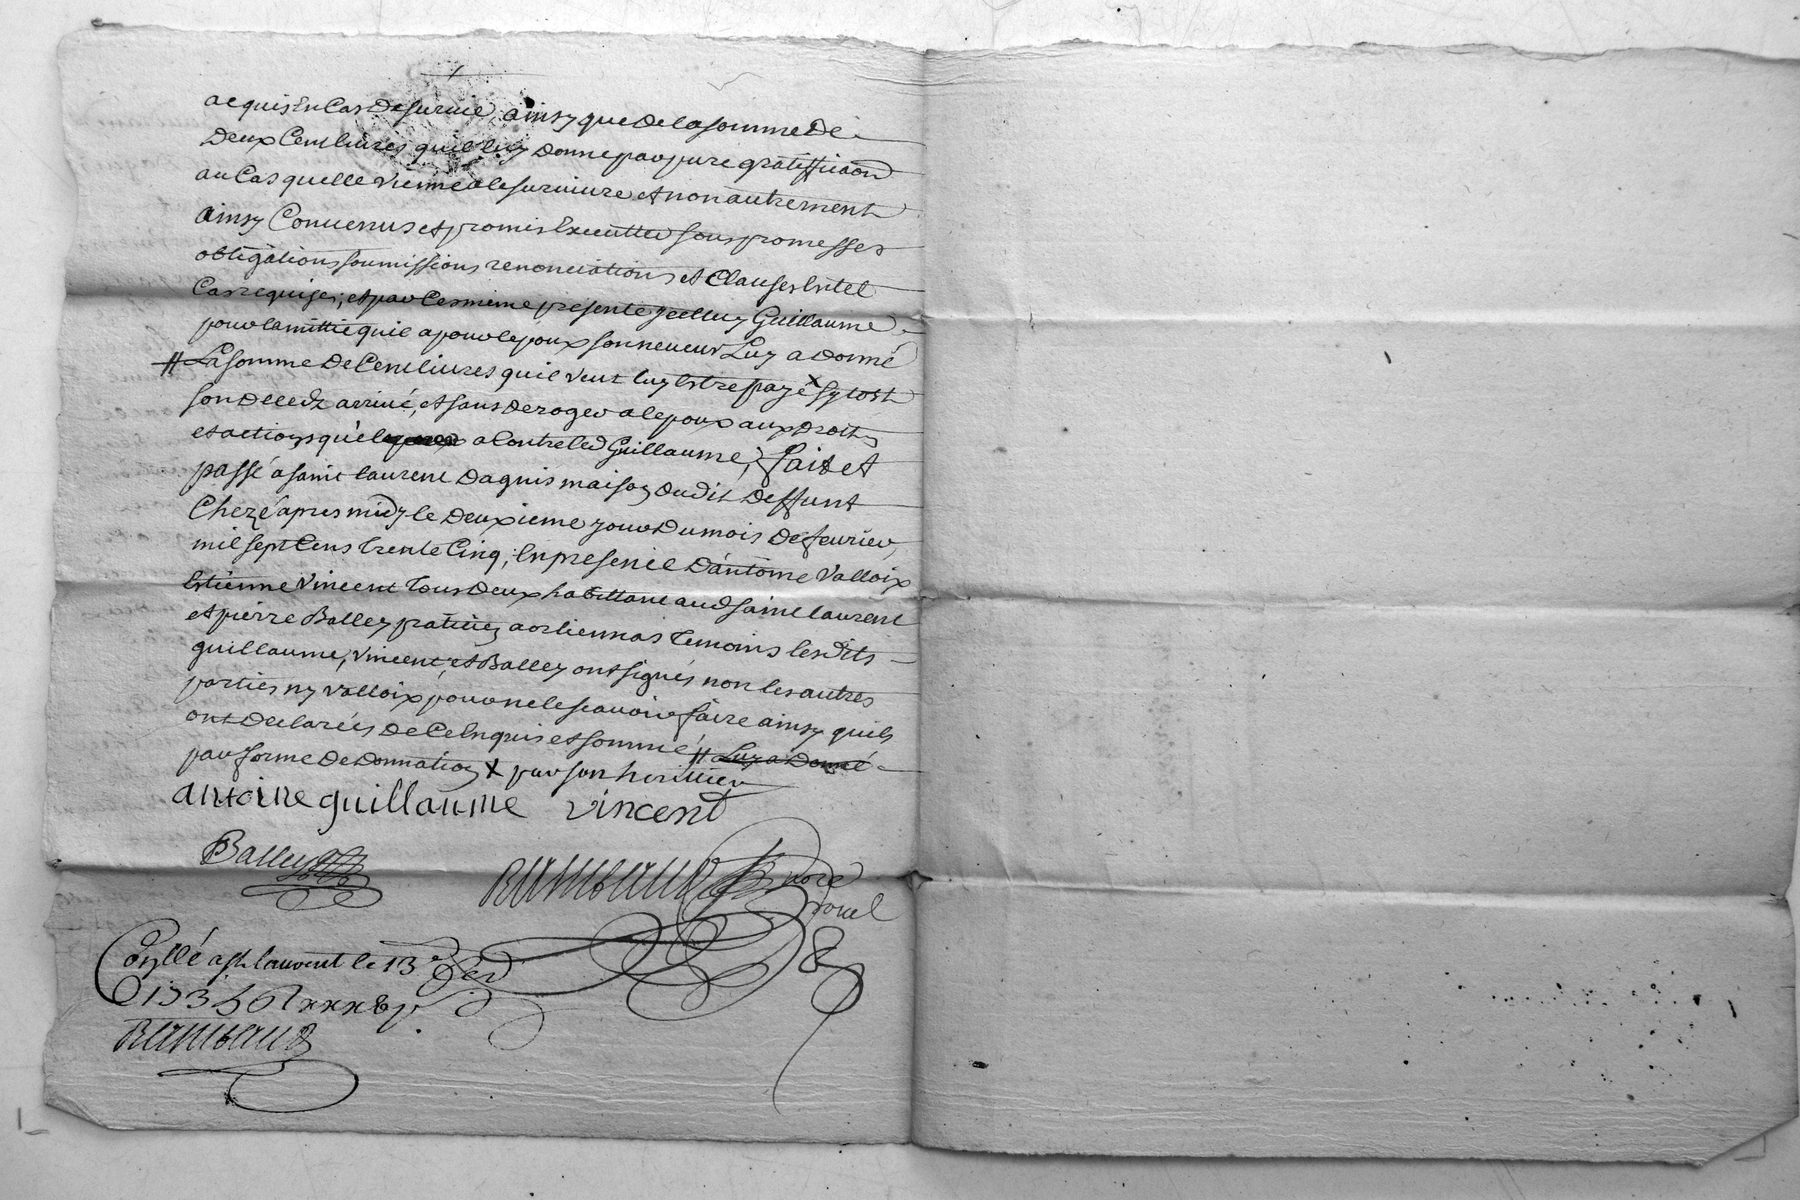 acquis en Cas de survie, ainsy que de la somme de
Deux Cent livres quil luy donne par pure gratiffica͠on
au Cas quelle vienne a le survivre et non autrement
ainsy Convenus et promis Executter sous promesses
obligations soumissions renonciations et Clauses En tel
Cas requises; et par Ces meme presente yCelluy Guillaume
pour lamittié quil a pour lepoux son neveur Luy a donné
# La somme de Cent livres quil veut luy Estre payé X sytost
son decedz arrivé, et sans deroger a lepoux aux droits
et actions quil a Contre led Guillaume, fait et
passé a saint laurent dagnis maison dudit deffunt
Chezé apres midy le deuxieme jour du mois de fevrier,
mil sept Cens trente Cinq, En presence d'antoine Valloix
Estienne Vincent tous deux habittant aud saint laurent
et pierre Balley praticien a orliennas temoins lesdits
guillaume, vincent et Balley ont signés non les autres
parties ny valloix pour ne le scavoir faire ainsy quils
ont declarées de Ce Enquis et sommé # Luy a Donné
par forme de donnation X par son herittier
antoine guillaume vincent
Balley
Rambaud Nore
Roiiel
Conllé a st laurent le 13e fev
1735
Rambaud